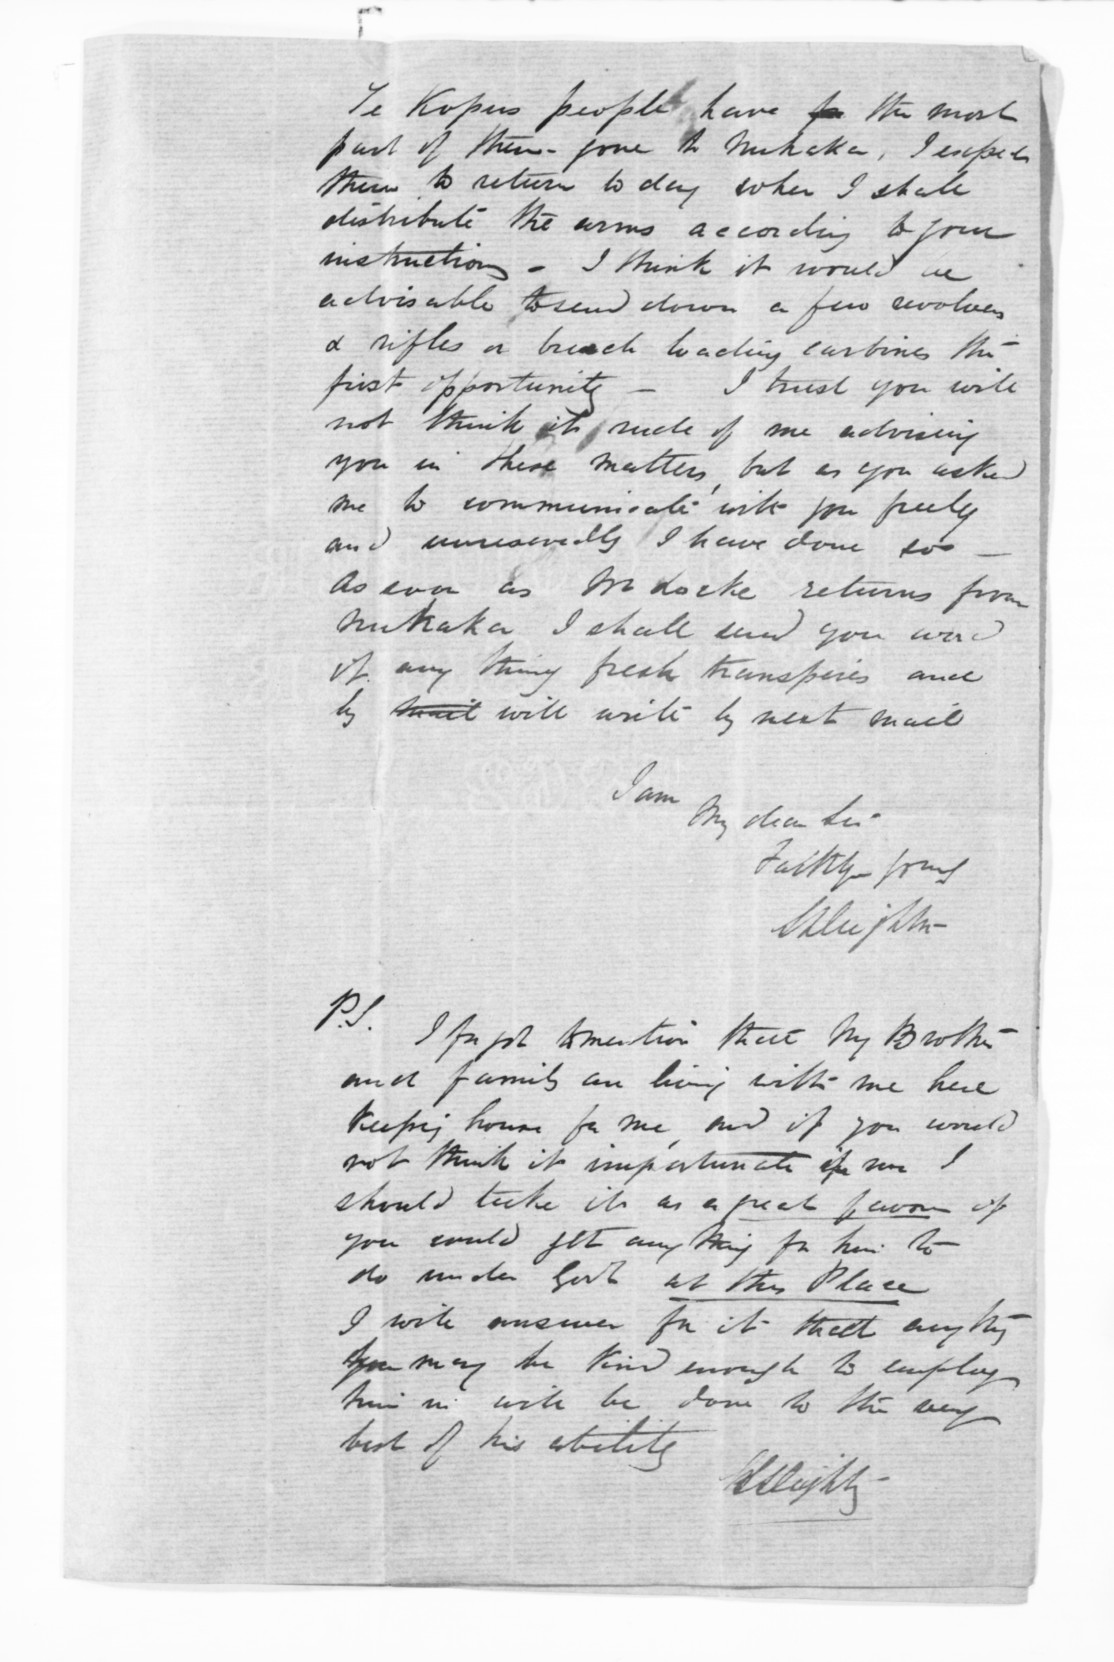 Te Kopus people have the most
part of them - gone to Nuhaka, I expect
them to return to day when I shall
distribute the arms according to your
instructions - I think it would be
advisable to send down a few revolvers
& rifles or breech loading carbines the
first opportunity - I trust you will
not think it rude of me advising
you in these matters, but as you asked
me to communicate with you freely
and unreservedly I have done so -
As soon as Mr Locke returns from
Nuhaka I shall send you word
if any thing fresh transpires and
by mail will write by next mail
I am
My dear Sir
Faithfy yours
P.S.
I forgot to mention that My Brother
and family are living with me here
keeping house for me, and if you would
not think it importunate in me I
should take it as a great favour if
you could get any thing for him to
do under Govt at this Place
I will answer for it that anything
you may be kind enough to employ
him in will be done to the very
best of his ability